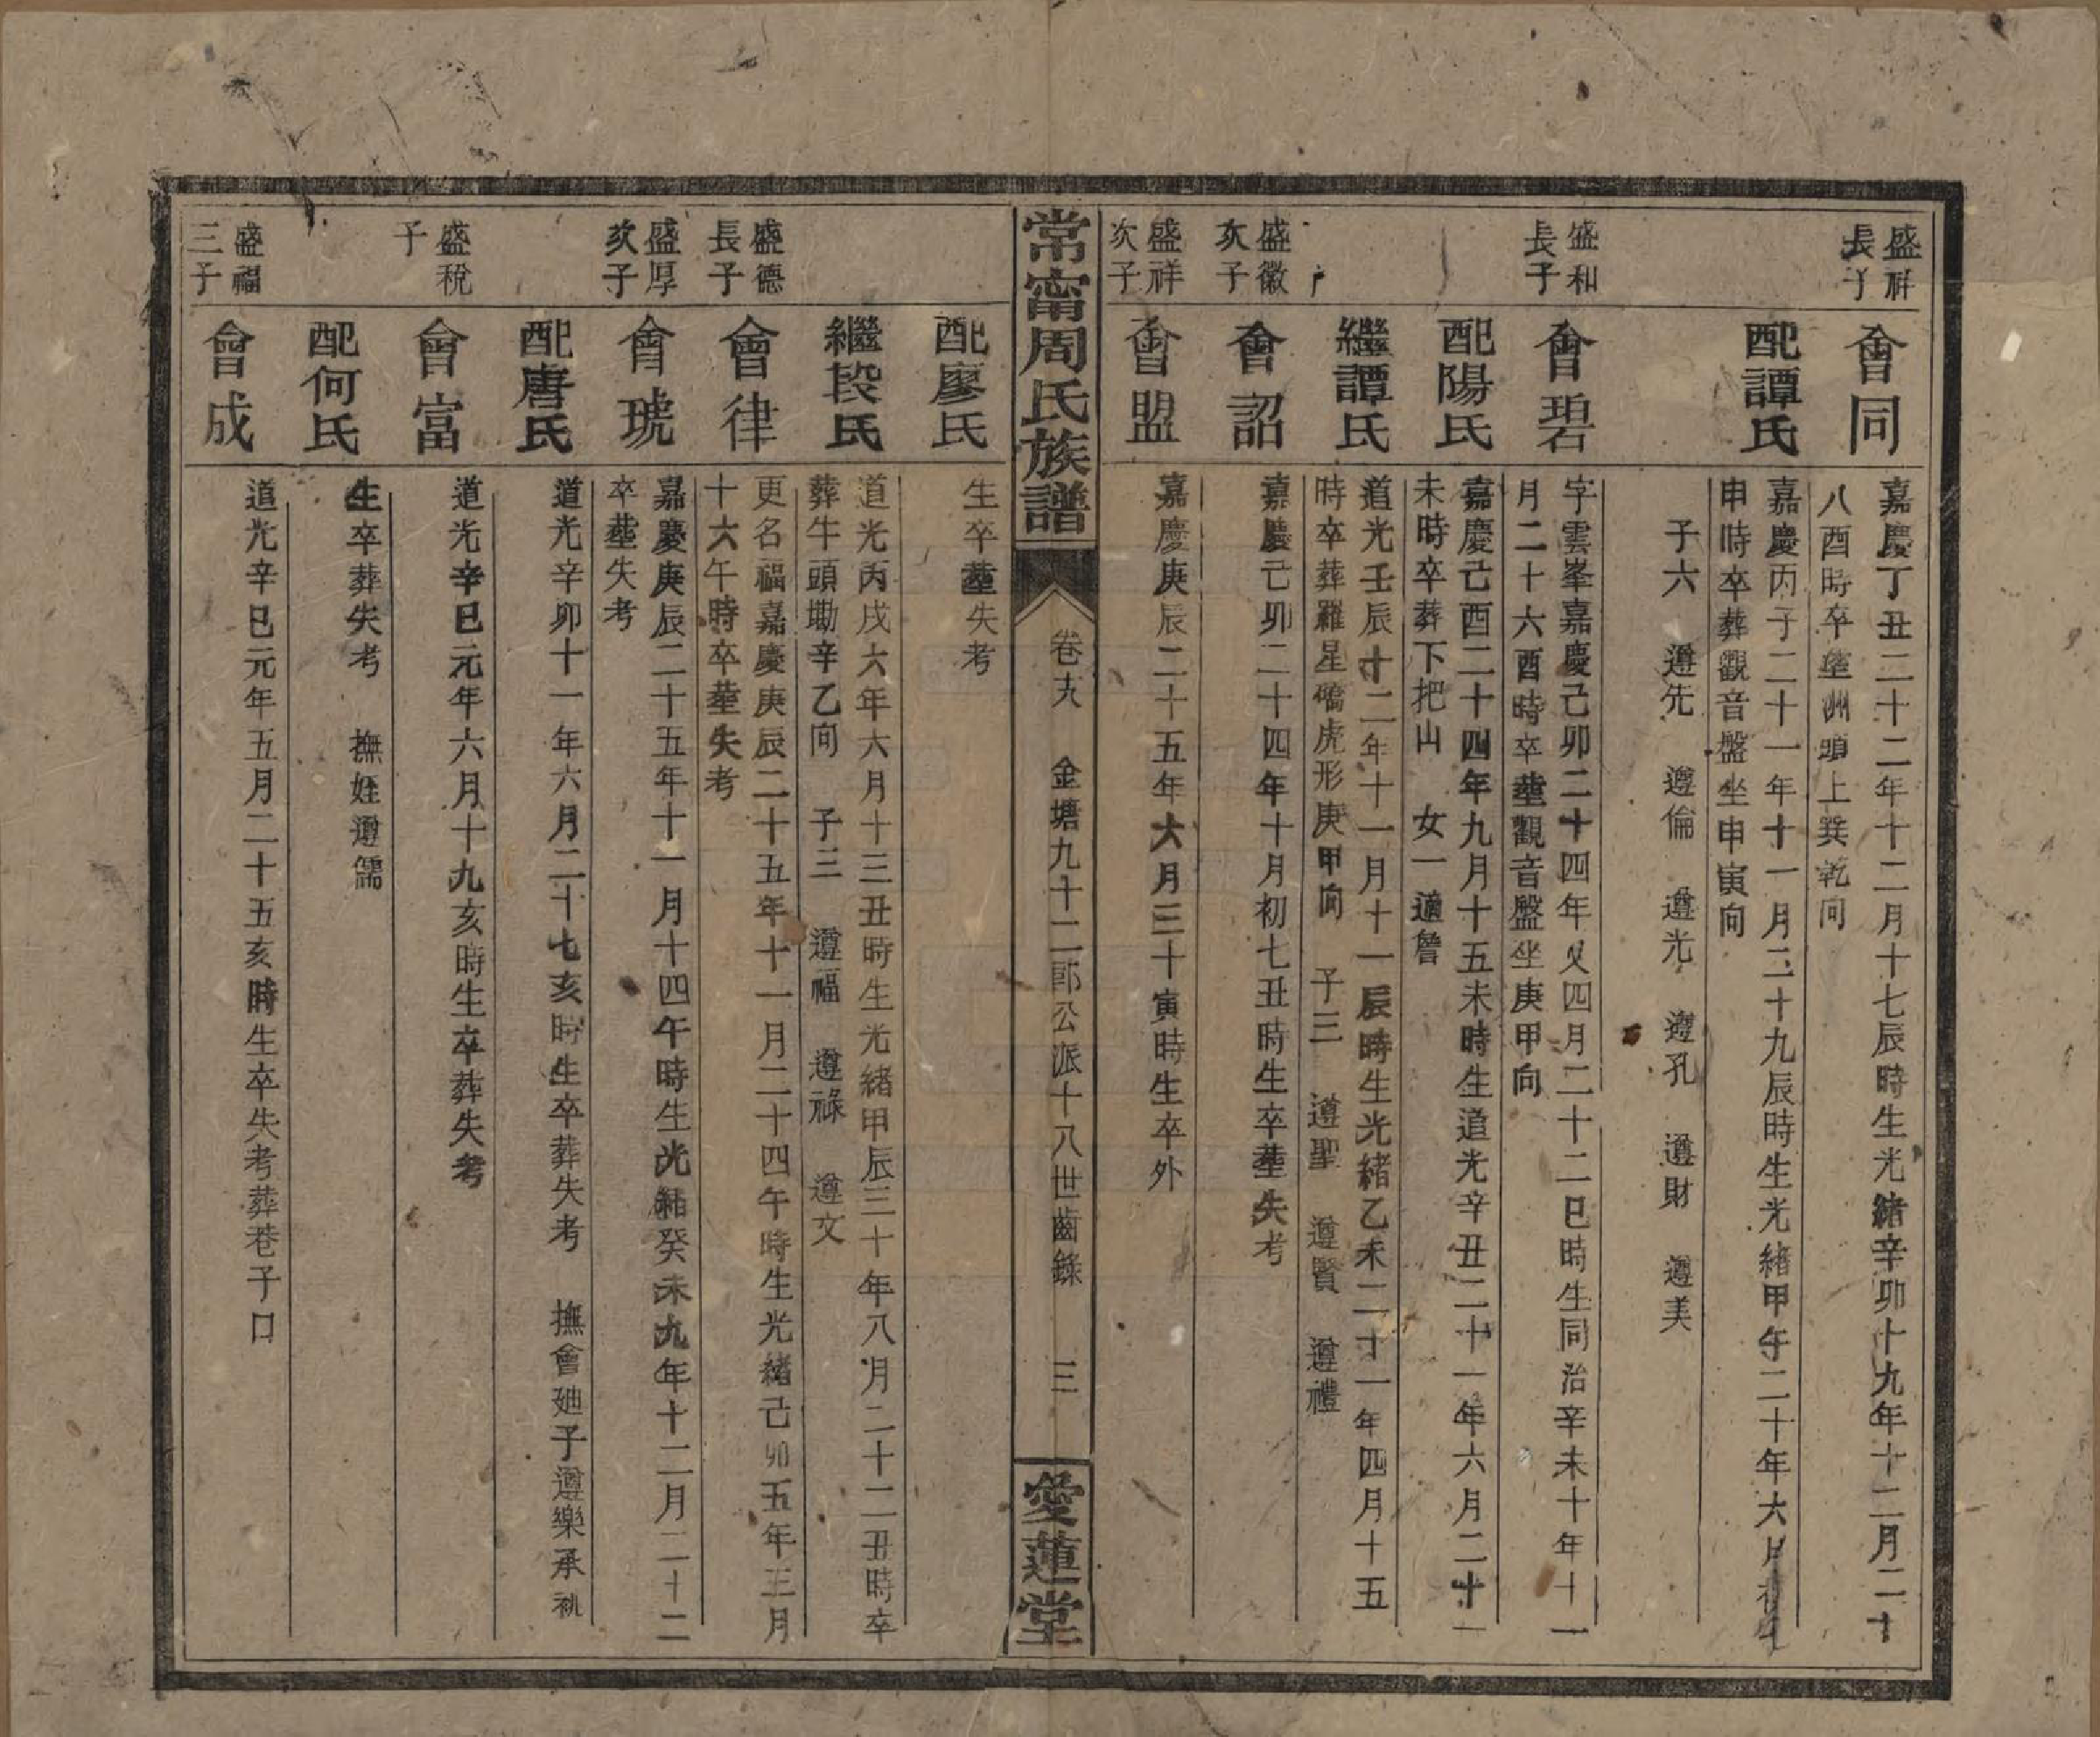 盛祥
長子
會同
嘉慶丁丑二十二年十二月十七辰時生光緒辛卯十九年十二月二十
八酉時卒塟洲頭上巽乾向
配譚氏
嘉慶丙子二十一年十一月二十九辰時生光緒甲午二十年六月
申時卒葬觀音盤坐申寅向
子六 遵先 遵倫 遵光 遵孔 遵財 遵美
盛和
長子
會碧
字雲峯嘉慶己卯二十四年又四月二十二巳時生同治辛未十年十一
月二十六酉時卒塟觀音盤坐庚甲向
配陽氏
嘉慶己酉二十四年九月十五未時生道光辛丑二十一年六月二十一
未時卒葬下把山 女一適詹
繼譚氏
道光壬辰十二年十一月十一辰時生光緒乙未二十一年四月十五
時卒葬羅星磜虎形庚甲向 子三 遵聖 遵賢 遵禮
盛徽
次子
會詔
嘉慶己卯二十四年十月初七丑時生卒塟失考
盛祥
次子
會盟
嘉慶庚辰二十五年六月三十寅時生卒外
常甯周氏族譜
卷十八 金塘九十二郎公派十八世齒錄 三
愛蓮堂
配廖氏
生卒塟失考
繼段氏
道光丙戌六年六月十三丑時生光緒甲辰三十年八月二十二丑時卒
葬牛頭坳辛乙向 子三 遵福 遵祿 遵文
盛德
長子
會律
更名福嘉慶庚辰二十五年十一月二十四午時生光緒己卯五年三月
十六午時卒塟失考
盛厚
次子
會琥
嘉慶庚辰二十五年十一月十四午時生光緒癸未九年十二月二十二
卒塟失考
配唐氏
道光辛卯十一年六月二十七亥時生卒葬失考 撫會廸子遵樂承祧
盛稅
子
會富
道光辛巳元年六月十九亥時生卒葬失考
配何氏
生卒葬失考 撫姪遵儒
盛福
三子
會成
道光辛巳元年五月二十五亥時生卒失考葬巷子口